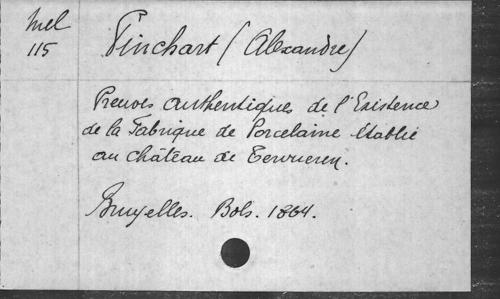 Mel
115
Pinchart (Alexandre)
Preuves authentiques de l'Existence
de la Fabrique de Porcelaine établie
au château de Tervueren.
Bruxelles. Bols. 1864.